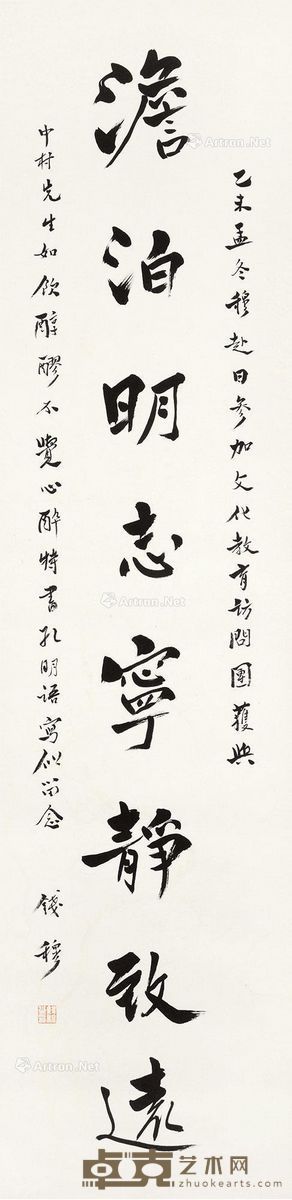 乙未孟冬穆赴日參加文化教育訪問團獲與
澹泊明志寧靜致遠
中村先生如飲醇醪不覺心醉特書孔明語寫似留念
錢穆
Artron.Net
Artron.Net
Artron.Net
Artron.Net
卓克艺术网
www.zhuokearts.com